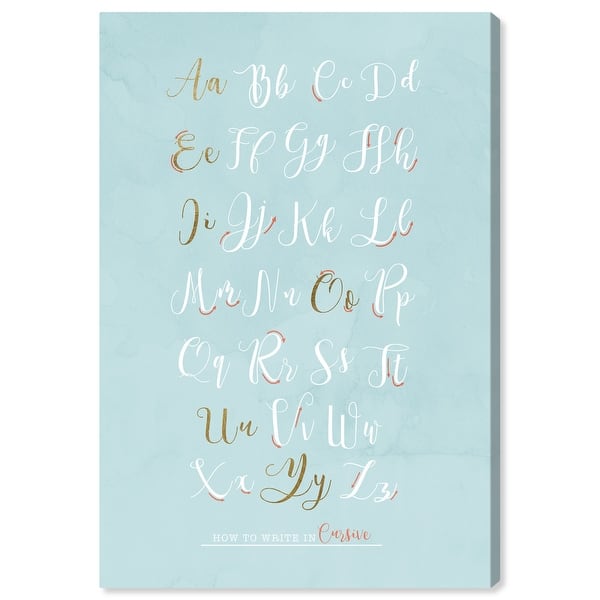 Aa Bb Cc Dd
Ee Ff Gg Hh
Ii Jj Kk Ll
Mm Nn Oo Pp
Qq Rr Ss Tt
Uu Vv Ww
Xx Yy Zz
HOW TO WRITE IN Cursive